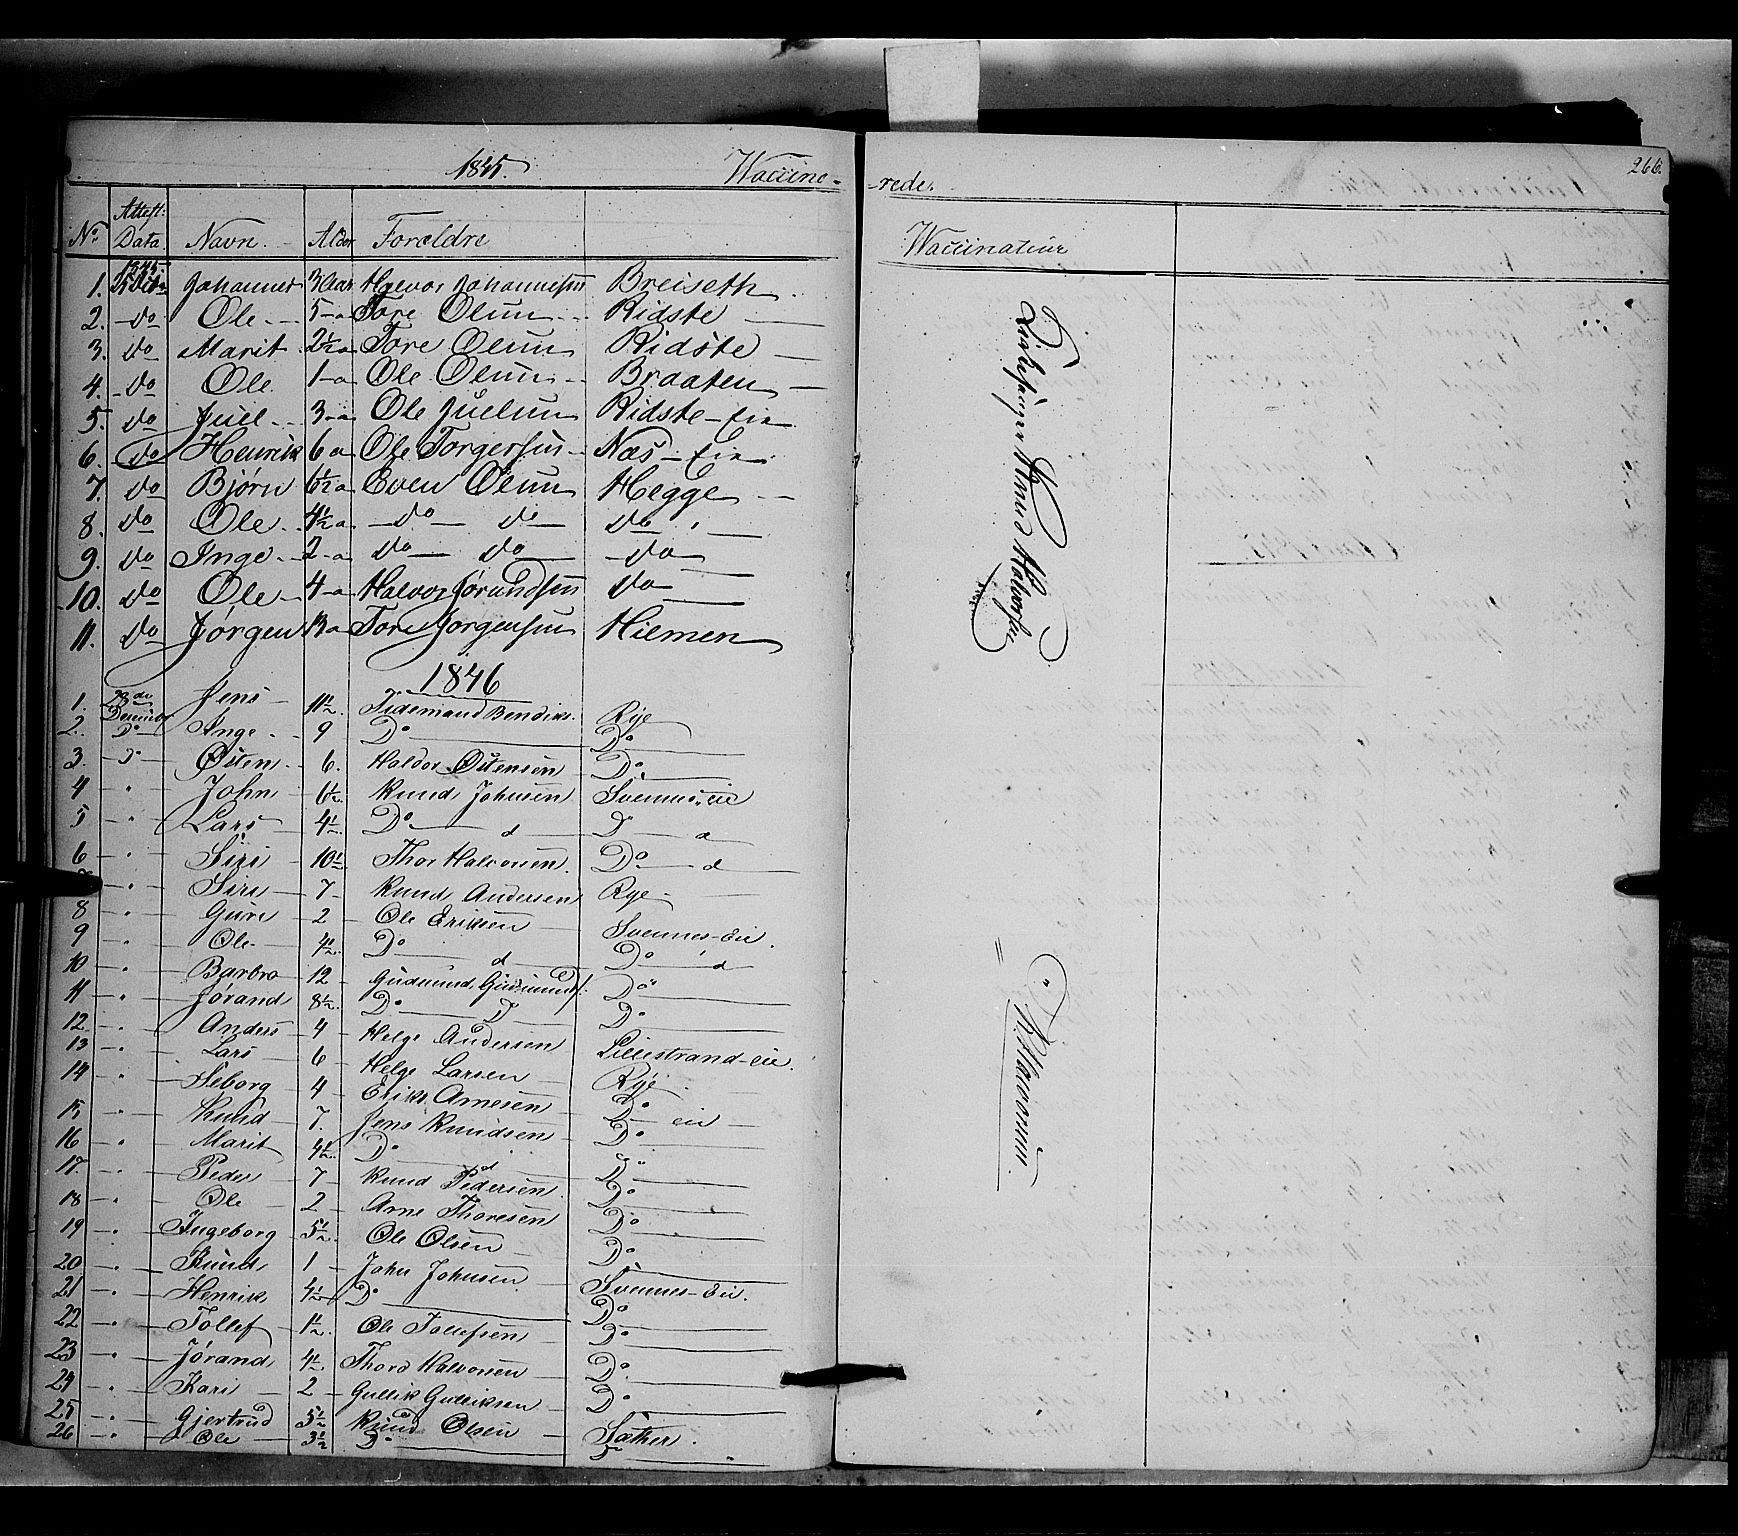 1845. Vaccine- -rede. 266.
No. Attest: Data Navn. Alder Forældre Vaccinateur
1. 1845 Johannes 3 Aar Halvor Johannessen Breiseth
2. do Ole 5 a Tore Olsen Ridste
3. do Marit 2½ a Tore Olsen Ridste
4. do Ole 1 a Ole Olsen Braaten
5. do Juel 3 a Ole Juelsen Ridste-Eie
6. do Henrik 6 a Ole Torgersen Næs-Eie
7. do Bjørn 6½ a Even Olsen Hegge
8. do Ole 4½ a do do do
9. do Inge 2 a do do do
10. do Ole 4 a Halvor Jørundsen do
11. do Jørgen 13 a Tore Jørgensen Hiemen
1846
1. 23de December Jens 11½ Tidemand Bendiks. Rye
2. Do Inge 9 Do Do
3. D Østen 6. Haldor Østensen Do
4 " John 6½ Knud Johnsen Svennes-eie
5 " Lars 4½ Do d D d
6 " Siri 10½ Thor Halvorsen Do d
" Siri 7 Knud Andersen Rye
8 " Guri 2 Ole Eriksen Svennes-Eie.
9 " Ole 4½ Do d Do d
10 " Barbro 12 Gudmund Gudmunds. Do
11 " Jørand 8½ Do D Do
12 " Anders 4 Helge Andersen Lillestrand-eie.
13 " Lars 6 Helge Larsen Rye
14 " Seborg 4 Erik Arnesen Do eie
15 " Knud 7. Jens Knudsen Do
16 " Marit 4½ Do d Do
17. " Peder 7 Knud Pedersen Do
18 " Ole 2 Arne Thoresen Do
19 " Ingeborg 5½ Ole Olsen Do
20 " Knud 1 John Johnsen Svennes-Eie.
21 " Henrik 4½ Do Do
22 " Tollef 1½ Ole Tollefsen Do
23 " Jørand 4½ Thord Halvorsen Do
24 " Kari 2 Gullik Gulliksen Do
25 " Gjertrud 5½ Knud Olsen Sæther.
26 " Ole 3½ Do D
Knud Halvorsen